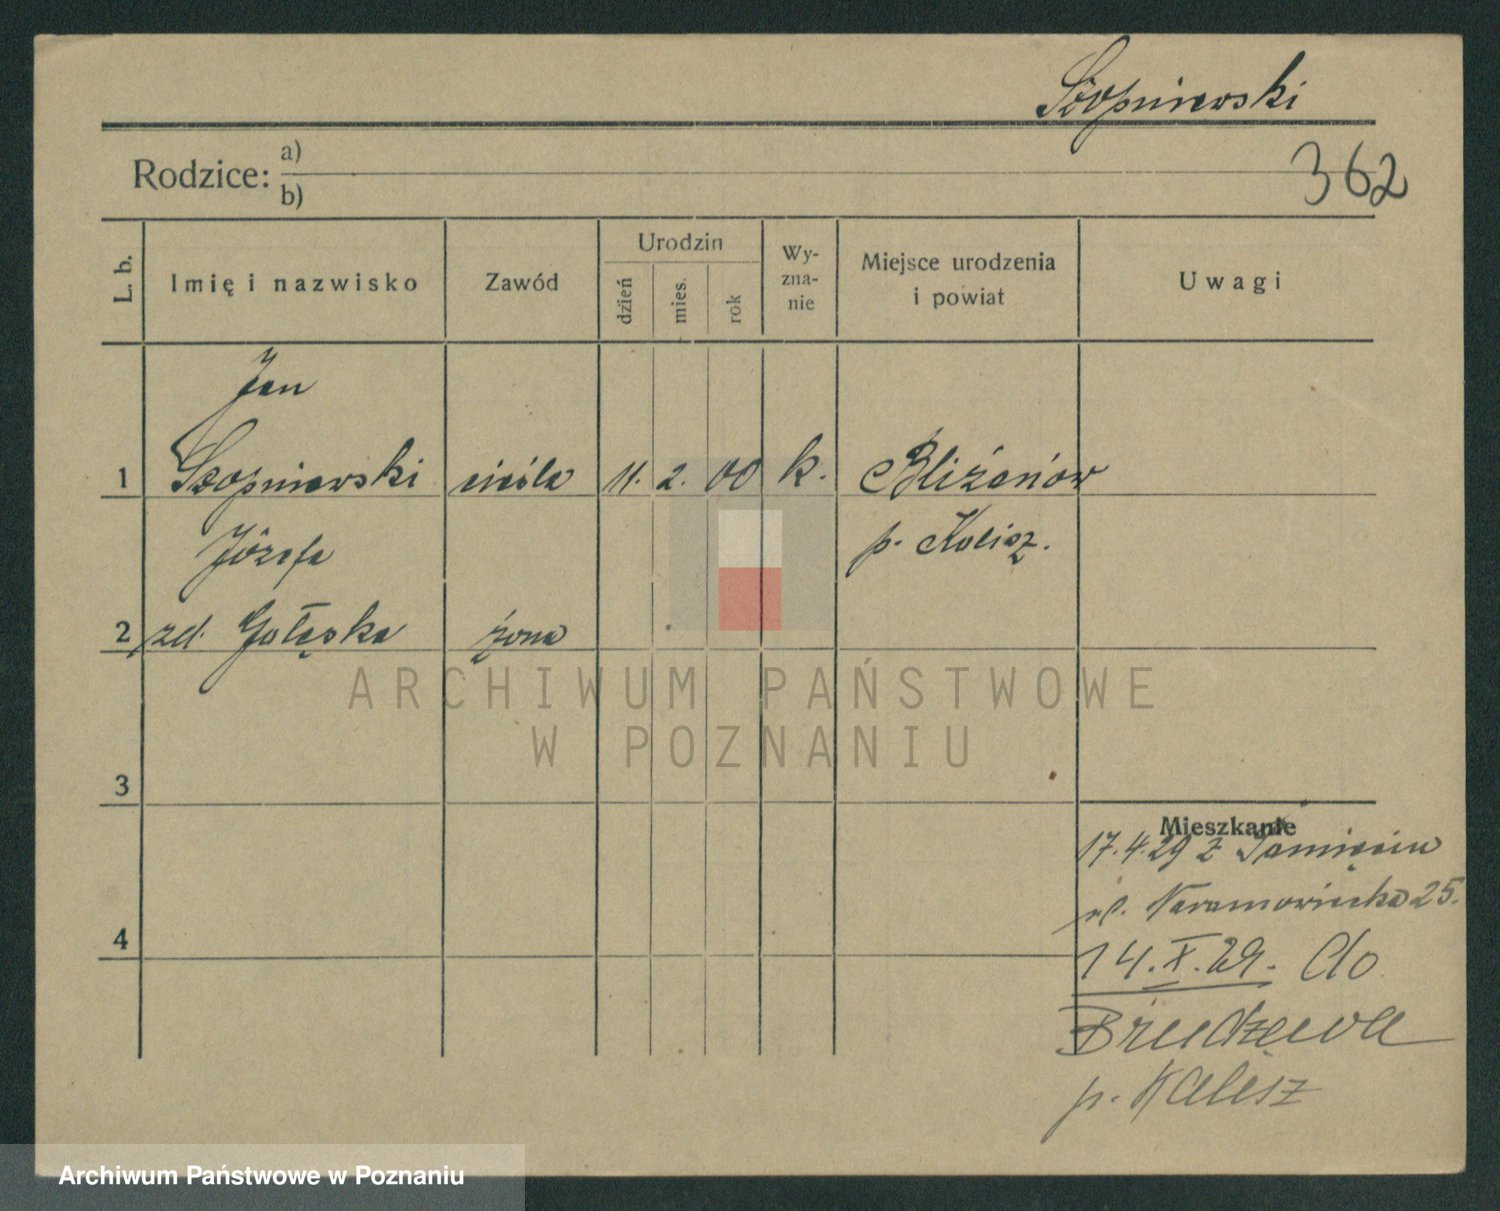 Szopniewski
362
Rodzice: a)
b)
L. b.
Imię i nazwisko
Zawód
Urodzin
dzień
mies.
rok
Wy-
zna-
nie
Miejsce urodzenia
i powiat
Uwagi
Jan
1 Szopniewski cieśla 11. 2. 00 k. Bliżanów
Józefa p. Kalisz.
2 zd. Gołęska żona
ARCHIWUM PAŃSTWOWE
W POZNANIU
3
Mieszkanie
17.4.29 z
ul. Naramowicka 25.
4
14.X.29. do
Brudzewa
p. Kalisz
Archiwum Państwowe w Poznaniu